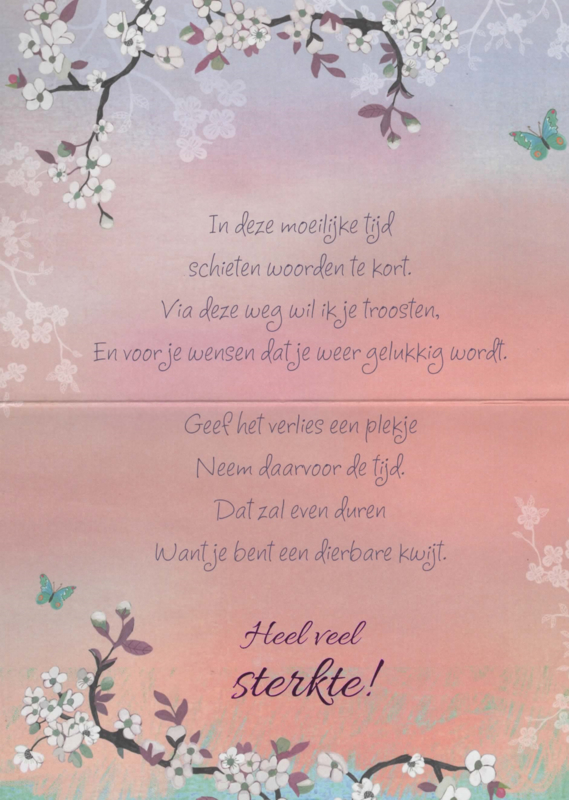 In deze moeilijke tijd
schieten woorden te kort.
Via deze weg wil ik je troosten,
En voor je wensen dat je weer gelukkig wordt.
Geef het verlies een plekje
Neem daarvoor de tijd.
Dat zal even duren
Want je bent een dierbare kwijt.
Heel veel
sterkte!